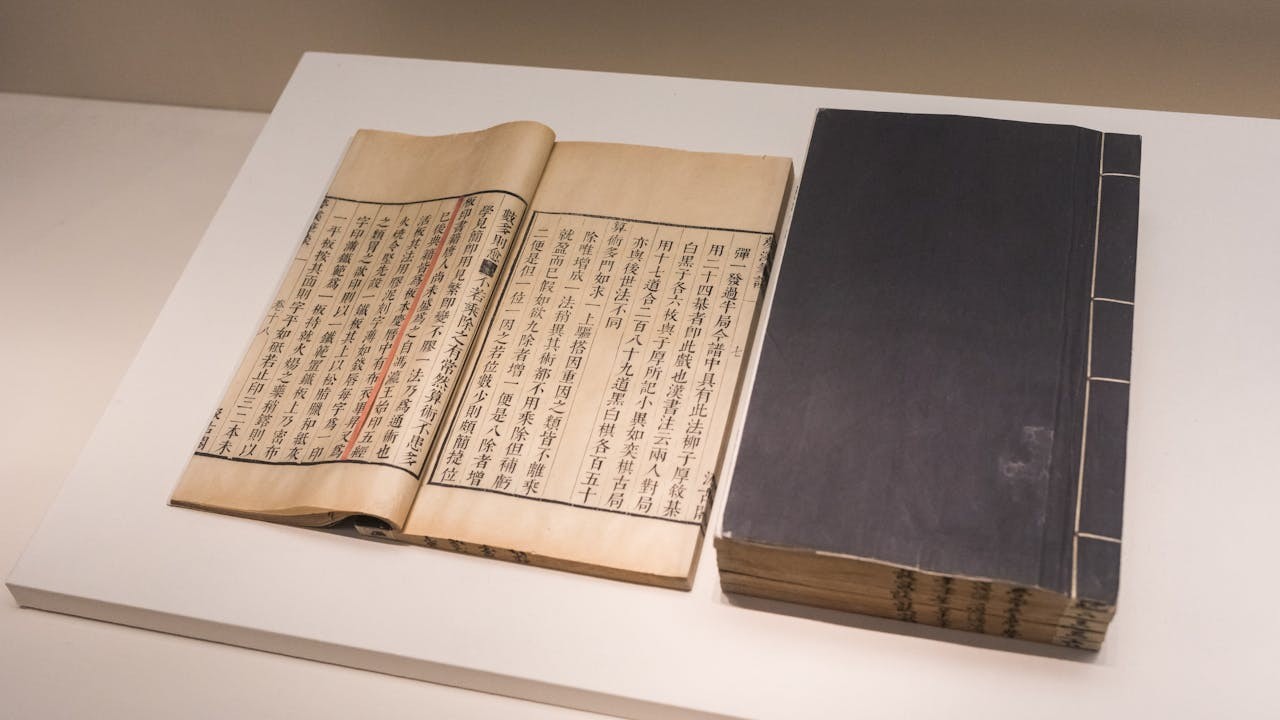 彈一發過半局今譜中具有此法柳子厚敘棊
用二十四棊者即此戲也漢書注云兩人對局
白黑子各六枚與子厚所記小異如奕棋古局
用十七道合二百八十九道黑白棋各百五十
亦與後世法不同
算術多門如求一上驅搭因重因之類皆不離乘
除唯增成一法稍異其術都不用乘除但補虧
就盈而已假如欲九除者增一便是八除者增
二便是但一位一因之若位數少則頗簡捷位
七
數多則愈不若乘除之有常然算術不患多
學見簡即用見繁即變不膠一法乃爲通術也
板印書籍唐人尚未盛爲之自馮瀛王始印五經
已後典籍皆爲板本慶曆中有布衣畢昇又爲
活板其法用膠泥刻字薄如錢唇每字爲一印
火燒令堅先設一鐵板其上以松脂臘和紙灰
之類冒之欲印則以一鐵範置鐵板上乃密布
字印滿鐵範爲一板持就火煬之藥稍鎔則以
一平板按其面則字平如砥若止印三二本未
卷十八